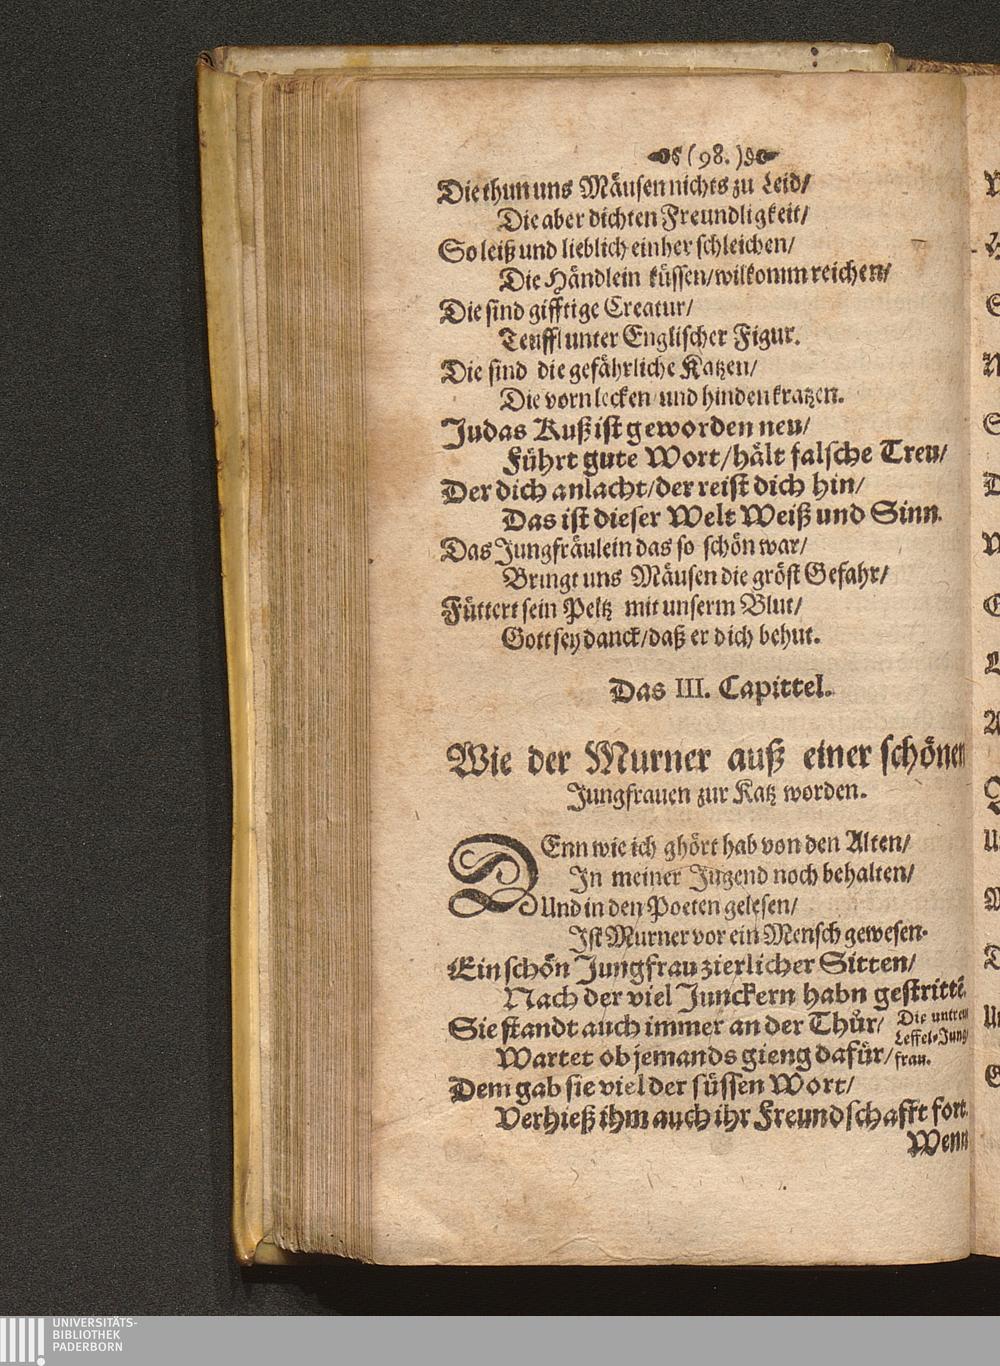 (98.)
Die thun uns Mäusen nichts zu Leid/
Die aber dichten Freundligkeit/
So leiß und lieblich einher schleichen/
Die Händlein küssen/ wilkomm reichen/
Die sind gifftige Creatur/
Teuffl unter Englischer Figur.
Die sind die gefährliche Katzen/
Die vorn lecken und hinden kratzen.
Judas Kuß ist geworden neu/
Führt gute Wort/ hält falsche Treu/
Der dich anlacht/ der reist dich hin/
Das ist dieser Welt Weiß und Sinn.
Das Jungfräulein das so schön war/
Bringt uns Mäusen die gröst Gefahr/
Füttert sein Peltz mit unserm Blut/
Gott sey danck/ daß er dich behut.
Das III. Capittel.
Wie der Murner auß einer schönen
Jungfrauen zur Katz worden.
DEnn wie ich ghört hab von den Alten/
In meiner Jugend noch behalten/
Und in den Poeten gelesen/
Ist Murner vor ein Mensch gewesen.
Ein schön Jungfrau zierlicher Sitten/
Nach der viel Junckern habn gestrittẽ.
Sie standt auch immer an der Thür/
Die untreu
Leffel-Jung
frau.
Wartet ob jemands gieng dafür/
Dem gab sie viel der süssen Wort/
Verhieß ihm auch ihr Freundschafft fort.
Wenn
UNIVERSITÄTS-
BIBLIOTHEK
PADERBORN